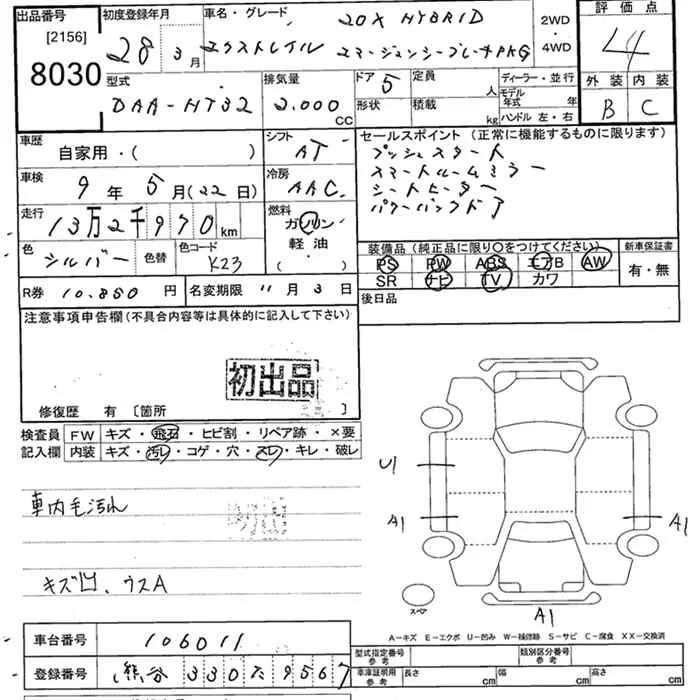 出品番号 [2156] 8030
初度登録年月 28年 3月
車名・グレード 20X HYBRID
エクストレイル エマージェンシーブレーキPKG
2WD・4WD
評価点 4
外装 B 内装 C
型式 DAA-HT32
排気量 2.000 CC
ドア 5 形状
定員 人
積載 kg
ディーラー・並行
モデル年式 年
ハンドル 左・右
車歴 自家用・( )
シフト AT
車検 9年 5月(22日)
冷房 AAC
走行 13万2千970 km
燃料 ガソリン 軽油 ( ・ )
色 シルバー 色替 色コード K23
R券 10.850 円 名変期限 11月 3日
セールスポイント (正常に機能するものに限ります)
プッシュスタート
スマートルームミラー
シートヒーター
パワーバックドア
装備品 (純正品に限り○をつけてください)
PS PW ABS エアB AW
SR ナビ TV カワ
新車保証書 有・無
後日品
注意事項申告欄 (不具合内容等は具体的に記入して下さい)
初出品
修復歴 有 〔箇所 〕
検査員記入欄
FW キズ・飛石・ヒビ割・リペア跡・×要
内装 キズ・汚レ・コゲ・穴・スレ・キレ・破レ
車内毛汚れ
キズ凹、ウスA
U1
A1
A1
A1
スペア
A-キズ E-エクボ U-凹み W-補修跡 S-サビ C-腐食 XX-交換済
車台番号 106011
登録番号 熊谷 330 9567
型式指定番号 参考
類別区分番号 参考
車庫証明用 参考 長さ cm 幅 cm 高さ cm